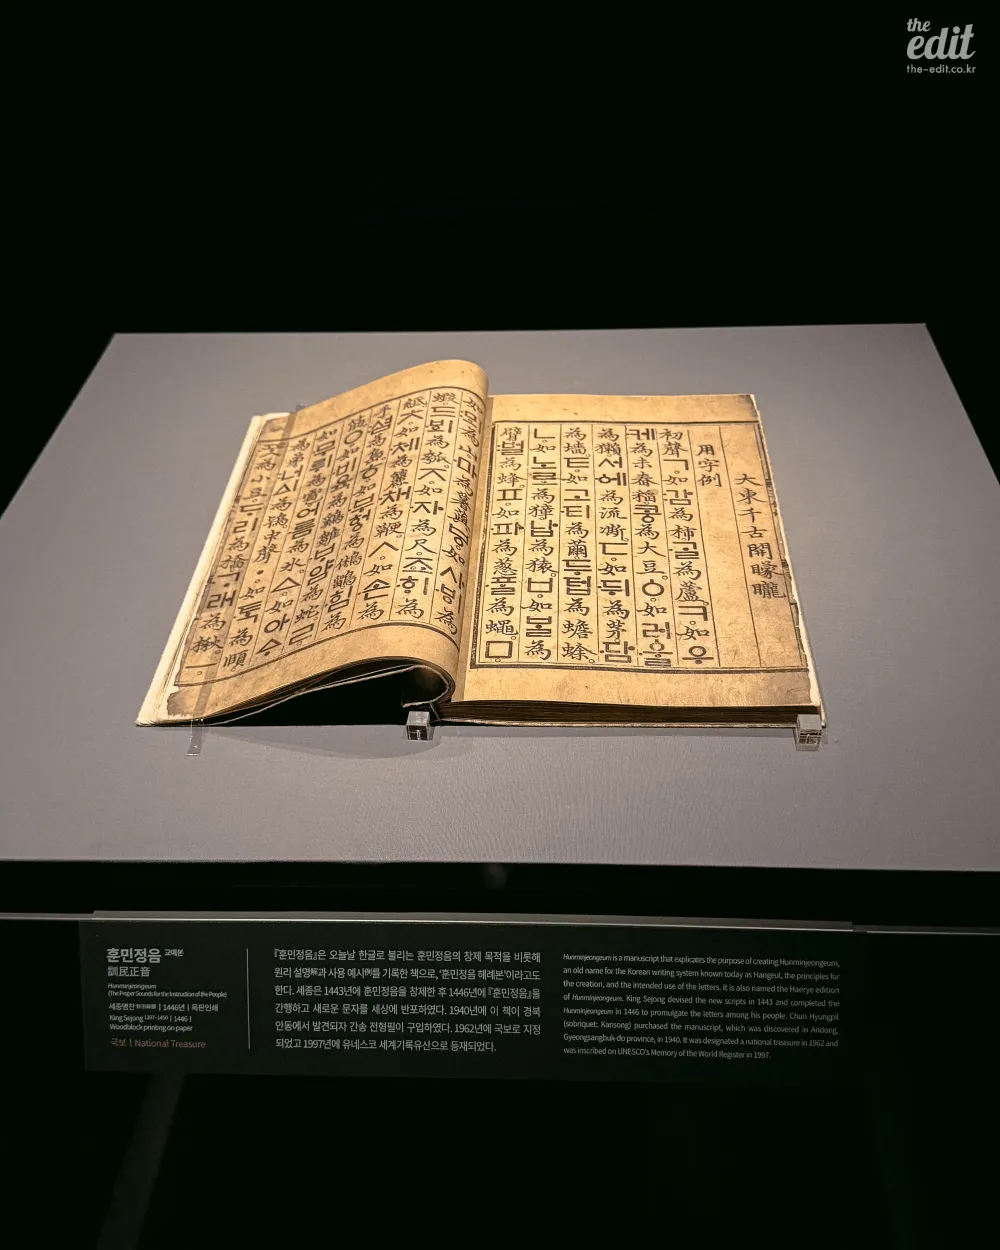 the
edit
the-edit.co.kr
大東千古開矇矓
用字例
初聲ㄱ。如감為柿。ᄀᆞᆯ為蘆。ㅋ。如우
케為未舂稻。콩為大豆。ㆁ。如러울
為獺。서에為流凘。ㄷ。如뒤為茅。담
為墻。ㅌ。如고티為繭。두텁為蟾蜍。
ㄴ。如노로為獐。납為猿。ㅂ。如ᄇᆞᆯ為
臂。벌為蜂。ㅍ。如파為葱。ᄑᆞᆯ為蠅。ㅁ。
如뫼為山。마為薯藇。ㅸ。如사ᄫᅵ為
蝦。드ᄫᅴ為瓠。ㅈ。如자為尺。죠ᄒᆡ為
紙。ㅊ。如체為籭。채為鞭。ㅅ。如손為
手。셤為島。ㅎ。如부헝為鵂鶹。힘為
筋。ㅇ。如비육為鷄雛。ᄇᆞ얌為蛇。ㄹ。
如무뤼為雹。어름為氷。ㅿ。如아ᅀᆞ
為弟。너ᅀᅵ為鴇。中聲ㆍ。如ᄐᆞᆨ為頤。
ᄑᆞᆺ為小豆。ᄃᆞ리為橋。ᄀᆞ래為楸。
훈민정음 교예본
訓民正音
Hunminjeongeum
(The Proper Sounds for the Instruction of the People)
세종명찬 | 1446년 | 목판인쇄
King Sejong 1397-1450 | 1446 |
Woodblock printing on paper
국보 | National Treasure
『훈민정음』은 오늘날 한글로 불리는 훈민정음의 창제 목적을 비롯해
원리 설명解과 사용 예시例를 기록한 책으로, '훈민정음 해례본'이라고도
한다. 세종은 1443년에 훈민정음을 창제한 후 1446년에 『훈민정음』을
간행하고 새로운 문자를 세상에 반포하였다. 1940년에 이 책이 경북
안동에서 발견되자 간송 전형필이 구입하였다. 1962년에 국보로 지정
되었고 1997년에 유네스코 세계기록유산으로 등재되었다.
Hunminjeongeum is a manuscript that explicates the purpose of creating Hunminjeongeum,
an old name for the Korean writing system known today as Hangeul, the principles for
the creation, and the intended use of the letters. It is also named the Haerye edition
of Hunminjeongeum. King Sejong devised the new scripts in 1443 and completed the
Hunminjeongeum in 1446 to promulgate the letters among his people. Chun Hyungpil
(sobriquet: Kansong) purchased the manuscript, which was discovered in Andong,
Gyeongsangbuk-do province, in 1940. It was designated a national treasure in 1962 and
was inscribed on UNESCO's Memory of the World Register in 1997.